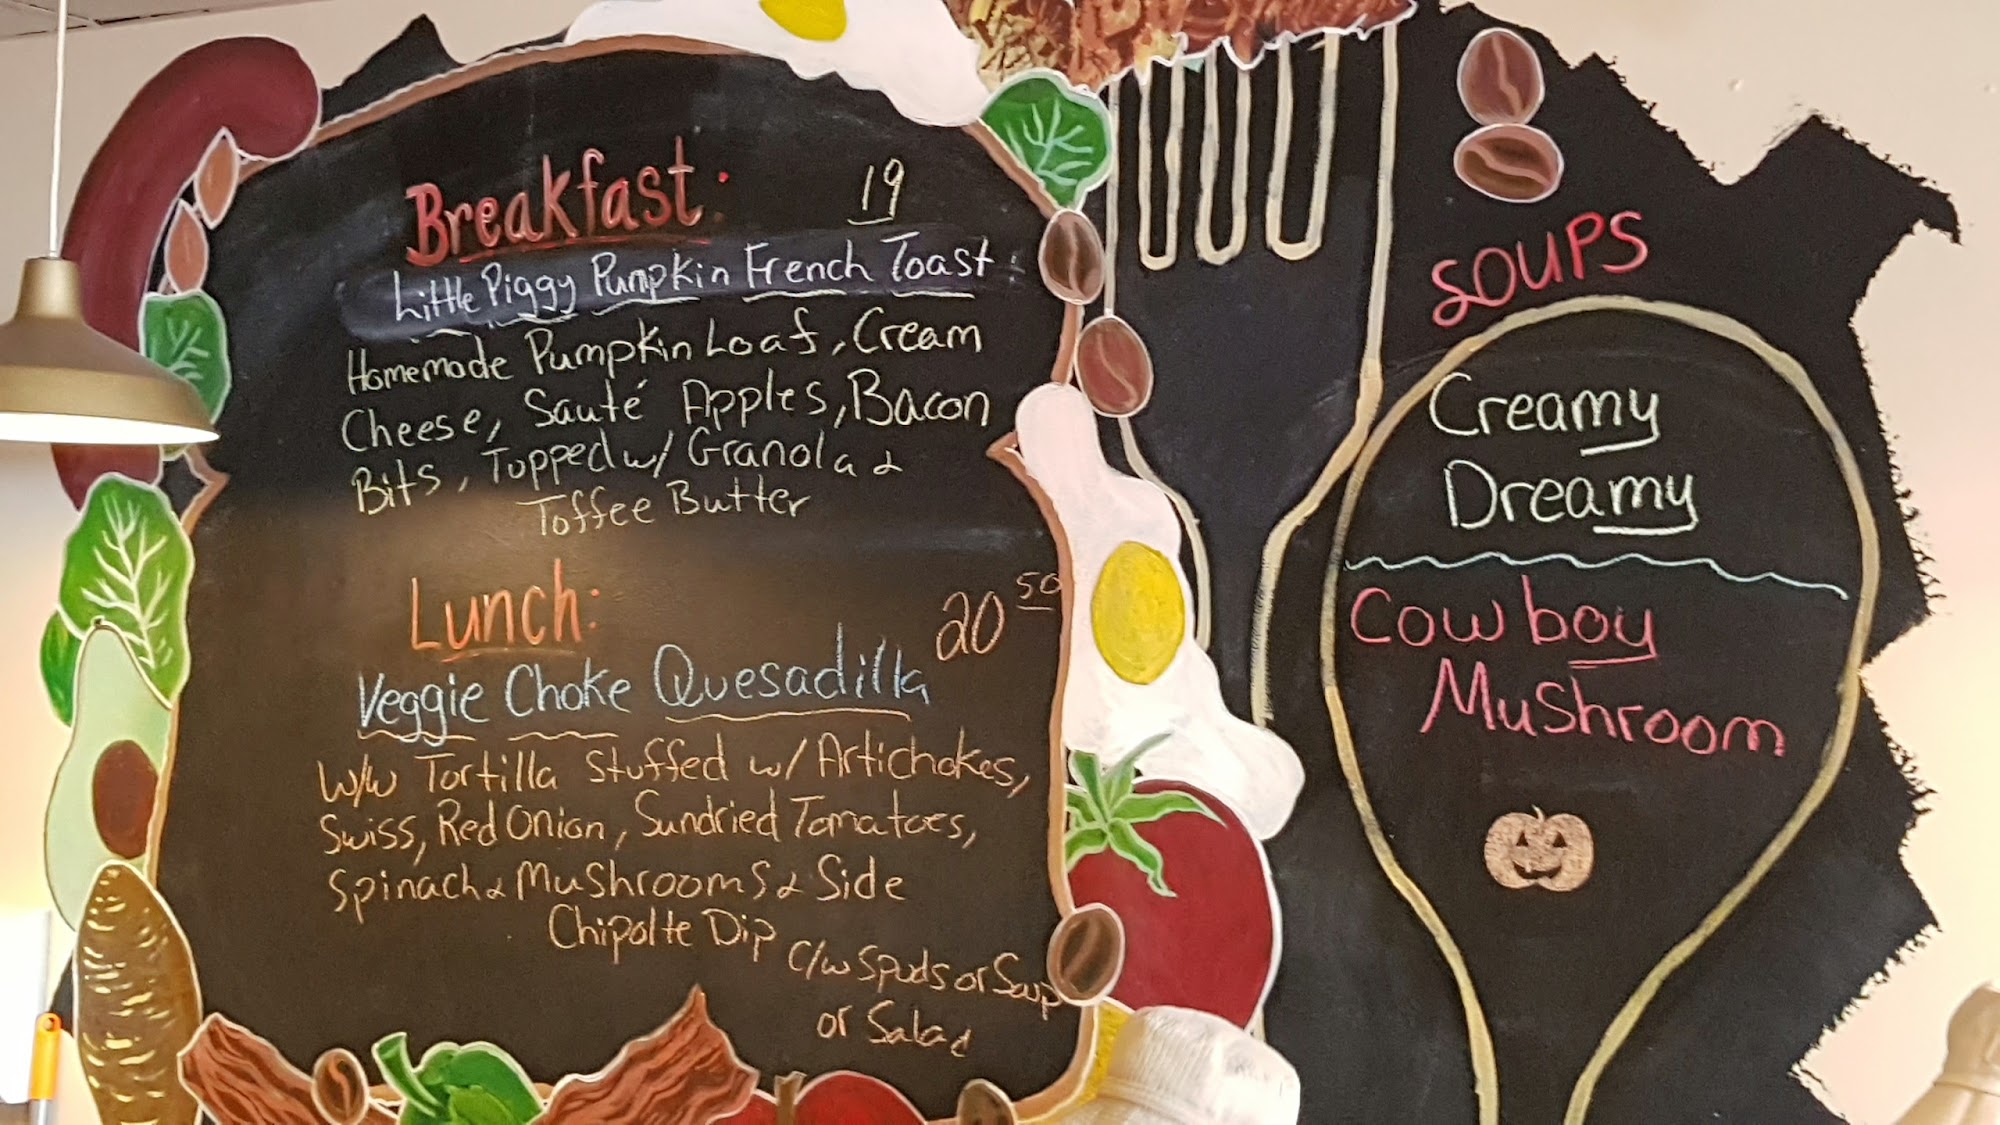 Breakfast: 19
Little Piggy Pumpkin French Toast
Homemade Pumpkin Loaf, Cream
Cheese, Sauté Apples, Bacon
Bits, Topped w/ Granola &
Toffee Butter
Lunch: 20 50
Veggie Choke Quesadilla
w/w Tortilla Stuffed w/ Artichokes,
Swiss, Red Onion, Sundried Tomatoes,
Spinach & Mushrooms & Side
Chipolte Dip
c/w Spuds or Soup
or Salad
SOUPS
Creamy
Dreamy
Cowboy
Mushroom